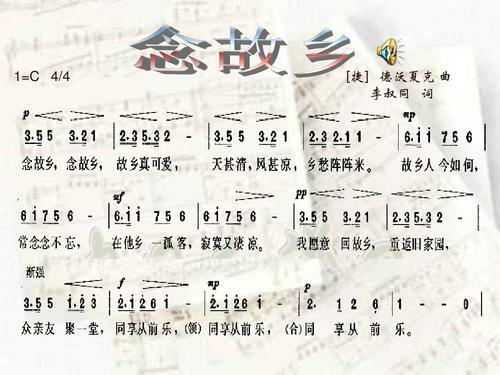 念故乡
1=C 4/4
[捷] 德沃夏克 曲
李叔同 词
p mp
3.55 3.21 | 2.35.32 - | 3.55 3.21 | 2.32.11 - | 6.i i 7 5 6 |
念故乡,念故乡, 故乡真可爱, 天甚清,风甚凉, 乡愁阵阵来。 故乡人今如何,
mf pp
6 i 7 5 6 - | 6.i i 7 5 6 | 6 i 7 5 6 - | 3.55 3.21 | 2.35.32 - |
常念念不忘, 在他乡 一孤客, 寂寞又凄凉。 我愿意 回故乡, 重返旧家园,
渐强 f mp p
3.55 i.23 | 2.i 2 6 i - | 2.i 2 6 i - | 2. 1 2 6 | i - - 0 ‖
众亲友 聚一堂, 同享从前乐,(领)同享从前乐, (合)同 享从 前 乐。